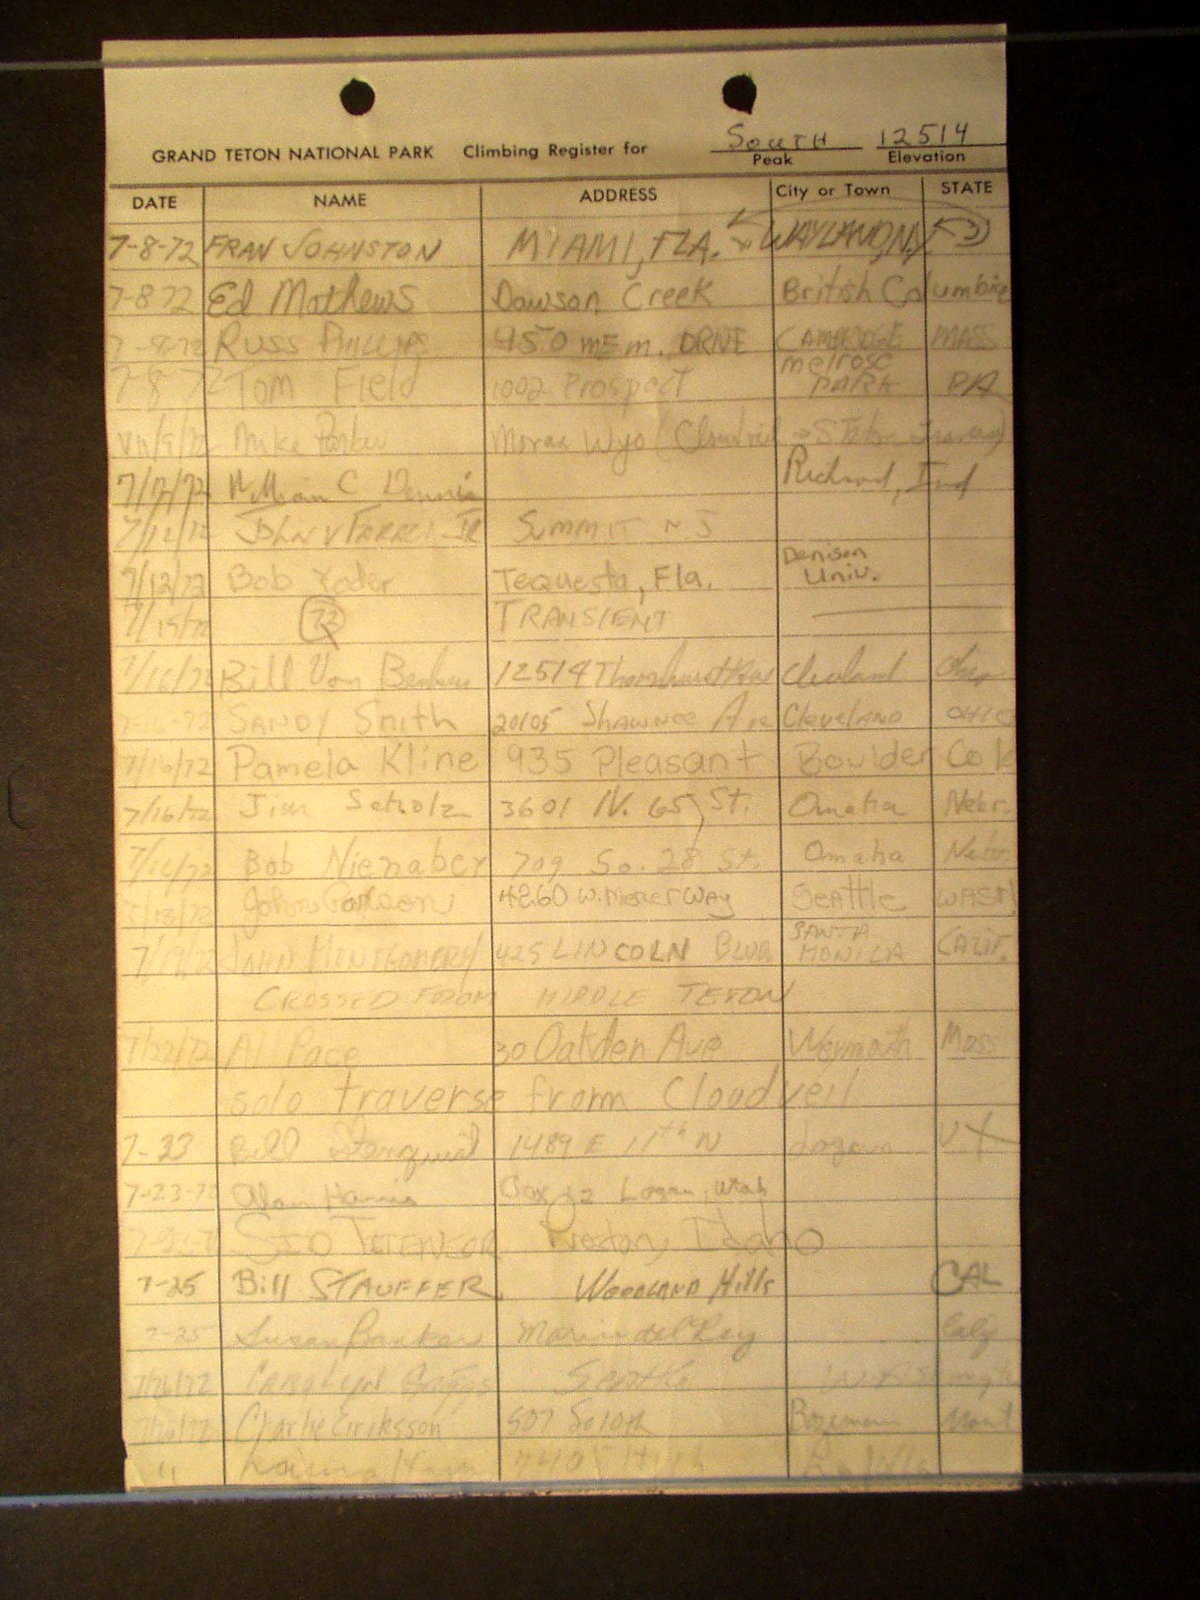 SOUTH 12514
GRAND TETON NATIONAL PARK Climbing Register for Peak Elevation
DATE NAME ADDRESS City or Town STATE
7-8-72 FRAN JOHNSTON MIAMI, FLA. WAYLAND, N.Y.
7-8-72 Ed Mathews Dawson Creek British Columbia
7-8-72 RUSS PHILLIPS 450 MEM. DRIVE CAMBRIDGE MASS
7-8-72 Tom Field 1002 Prospect melrose PARK PA
VII/9/72 Mike Moran Wyo (Cloudveil → S Teton Traverse)
7/12/72 William C Dennis Richmond, Ind
7/12/72 JOHN V JR SUMMIT NJ
7/12/72 Bob Yoder Tequesta, Fla. Denison Univ.
7/15/72 TRANSIENT
7/16/72 Bill Von 12514 Cleveland Ohio
7-16-72 SANDY Smith 20105 Shawnee Ave Cleveland OHIO
7/16/72 Pamela Kline 935 Pleasant Boulder Colo
7/16/72 Jim Scholz 3601 N. 65 St. Omaha Nebr.
7/16/72 Bob Nienaber 709 So. 28 St. Omaha Nebr
John 4260 W. Mercer Way Seattle WASH
7/17/72 JOHN MONTGOMERY 425 LINCOLN BLVD SANTA MONICA CALIF.
CROSSED FROM MIDDLE TETON
7/22/72 Al Pace 30 Oakden Ave Weymouth Mass
solo traverse from Cloudveil
7-23 Bill 1489 E 11th N Logan UT
7-23-72 Alan Harris Box 92 Logan, Utah
Preston, Idaho
7-25 Bill STAUFFER Woodland Hills CAL
7-25 Susan Marina del Rey Calif
7/26/72 Seattle
7/26/72 Charlie Eriksson 507 So 10th Bozeman Mont
"